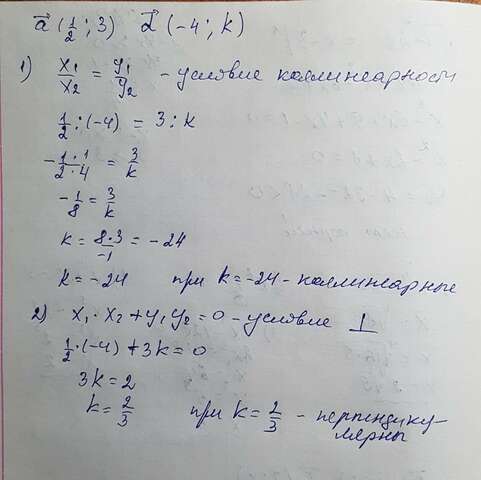 a⃗ (1/2 ; 3)   d⃗ (-4 ; k)
1) x₁/x₂ = y₁/y₂ - условие коллинеарности
1/2 : (-4) = 3 : k
- 1·1/2·4 = 3/k
- 1/8 = 3/k
k = 8·3/-1 = -24
k = -24   при k = -24 - коллинеарные
2) x₁·x₂ + y₁y₂ = 0 - условие ⊥
1/2·(-4) + 3k = 0
3k = 2
k = 2/3   при k = 2/3 - перпендику-
лярны